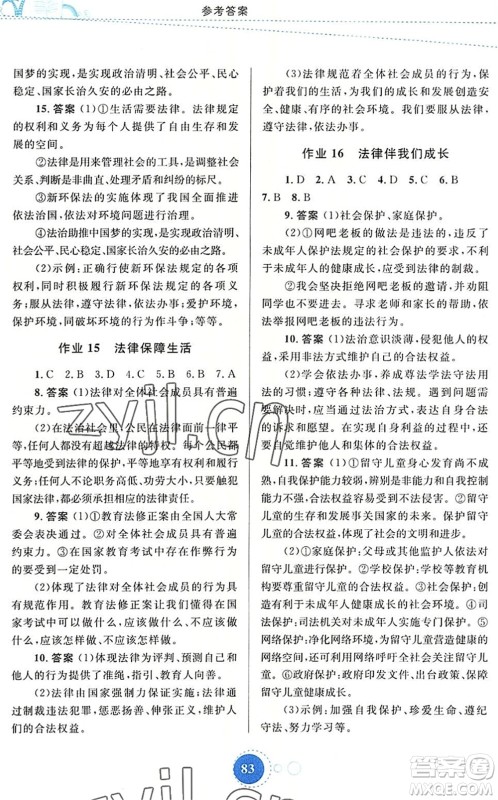 参考答案
国梦的实现,是实现政治清明、社会公平、民心
稳定、国家长治久安的必由之路。
15. 答案 (1)①生活需要法律。法律规定
的权利和义务为每个人提供了自由生存和发
展的空间。
②法律是用来管理社会的工具,是调节人
际、判断是非曲直、处理矛盾和纠纷的标尺。
③新环保法的实施体现了我国全面推进
依法治国,依宪治国的方略。
④法治助推中国梦的实现,是实现政治清
明、社会公平、民心稳定、国家长治久安的必由
之路。
(2)示例:正确行使新环保法规定的各项
权利,同时积极履行新环保法规定的各项义
务;服从法律、遵守法律、依法办事;爱护环境、
保护环境,同破坏环境的行为作斗争;等等。
作业 15 法律保障生活
1. C 2. B 3. D 4. C 5. B 6. B 7. A
8. 答案 (1)法律对全体社会成员具有普遍
约束力。
(2)在法治社会里,公民在法律面前一律平
等,任何人都没有超越法律的特权。每个公民都
平等地受到法律的保护,平等地享有权利和履行
义务。任何人不论职务高低、功劳大小,只要触
犯国家法律,都应该承担法律责任。
9. 答案 (1)①教育法修正案由全国人大常
委会表决通过。②教育法对全体社会成员具有普遍
约束力。③在国家教育考试中存在作弊行为的
也要被追究法律责任。
(2)体现了法律对全体社会成员的行为具
有规范作用。教育法修正案让我们懂得在国
家考试中可以做什么、应该做什么、不应该做
什么,应该怎样做、不应该怎样做。
10. 答案 (1)体现法律为评判、预测自己和
他人的行为提供了准绳,指引、教育人向善。
(2)法律由国家强制力保证实施。法律通
过制裁违法犯罪、惩恶扬善、伸张正义维护人们
的合法权益。
(3)法律规范着全体社会成员的行为,保护
着我们的生活,为我们的成长和发展创造安
全、健康、有序的社会环境。我们要服从法律、
遵守法律、依法办事。
作业 16 法律伴我们成长
1. D 2. A 3. D 4. D 5. C 6. B
7. B 8. B
9. 答案 (1)①社会保护、家庭保护。
②网吧老板的做法是违法的,他违反了
未成年人保护法规定的社会保护,不利于未成
年人的健康成长,应受到法律的制裁。
③当我受到网吧老板的恐吓时,应及时
寻求老师和家长的帮助,拿起法律的武器,依
法举报网吧老板的违法行为。
(2)示例:①法治意识淡薄,侵犯他人的权
利,采用非法方式解决问题,侵害他人合法权益。
②学会依法办事,养成遇事找法、办事依
法的习惯;增强法治意识。遇到问题时,
依照法定的程序和方式,表达自身合法
的诉求和愿望,以实际行动来维护自身
的合法权益。
11. 答案 (1)①留守儿童身心发育尚不成
熟,自我保护能力较弱,辨别是非能力和自我控
制能力不强。②这是由留守儿童的生理、心理
特点决定的。③留守儿童的健康成长关系着国
家和民族的未来。④给予留守儿童特殊的关
爱和保护,已经成为人类的共识,体现着人类
社会的文明和进步。
(2)①家庭保护:父母或其他监护人应依法
对留守儿童进行监护。②学校保护:学校等教育
机构应保障留守儿童的合法权益。③社会保护:
社会应依法维护留守儿童的合法权益,并努力创
造有利于未成年人健康成长的社会环境。④司法
保护:司法机关应依法履行职责,保护留守儿童的
合法权益。⑤净化网络环境,为留守儿童营造健康的
网络空间,还应出台政策,全社会关注留守儿
童,保障留守儿童健康成长。
(3)示例:提高自我保护、珍爱生命、遵纪
守法、努力学习等。
zyjl.cn
zyjl.cn
83
答案圈
MXQE.COM